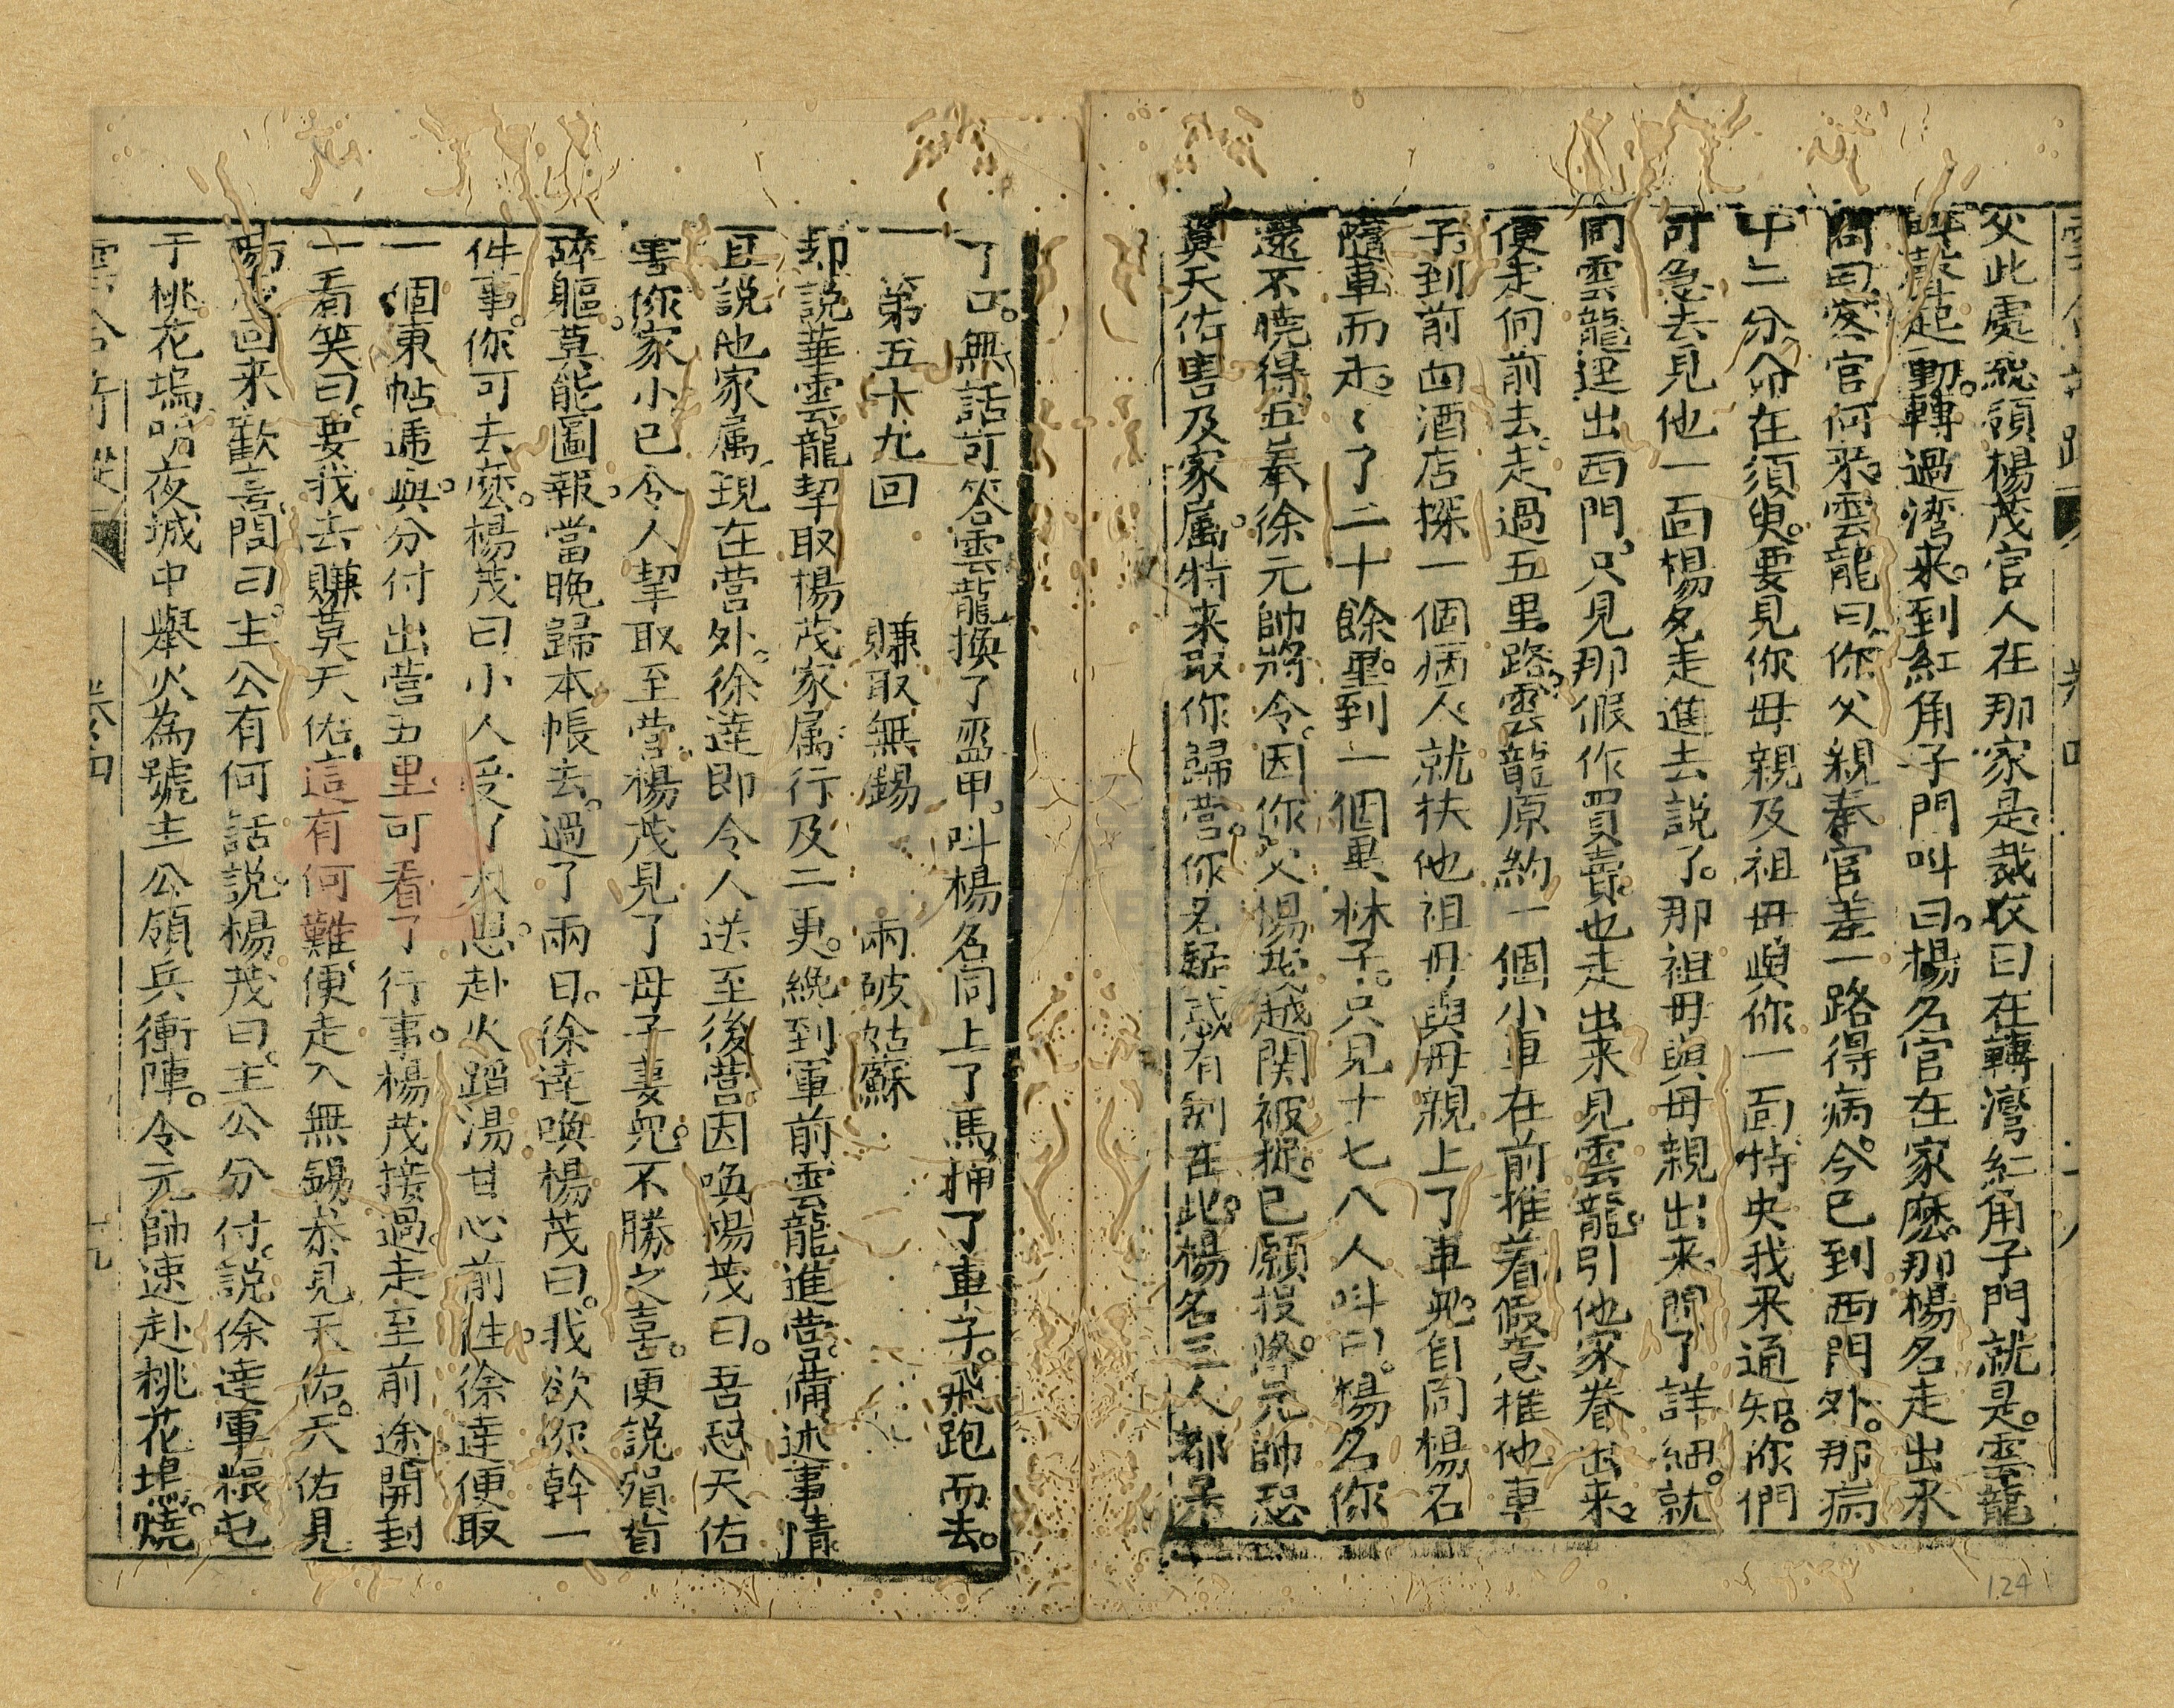 父此處總領楊茂官人在那家是裁衣曰在轉灣紅角子門就是雲龍
聲起動轉過湾来到紅角子門叫曰楊名官在家麽那楊名走出来
問曰客官何来雲龍曰你父親奉官差一路得病今已到西門外那病
十二分命在須臾要見你母親及祖母與你一面特央我来通知你們
可急去見他一面楊名走進去説了那祖母與母親出来問了詳細就
同雲龍迳出西門只見那假作買賣也走出来見雲龍引他家眷出来
便走向前去走過五里路雲龍原約一個小車在前推着假意推他車
子到前面酒店探一個病人就扶他祖母與母親上了車児自同楊名
隨車而走〻了二十餘里到一個黒林子只見十七八人叫曰楊名你
還不曉得五奉徐元帥將令因你父楊茂越関被捉已願投降元帥恐
莫天佑害及家属特来取你歸營你名疑惑有劄在此楊名三人都呆
了口無話可答雲龍換了盔甲叫楊名同上了馬捅了車子飛跑而去
第五十九回　賺取無錫　兩破姑蘇
却説華雲龍挈取楊茂家属行及二更纔到軍前雲龍進營備述事情
且説他家属現在营外徐達即令人送至後营因喚楊茂曰吾恐天佑
害你家小已令人挈取至营楊茂見了母子妻児不勝之喜便説殞首
碎軀莫能圖報當晚歸本帳去過了兩日徐達喚楊茂曰我欲你幹一
件事你可去麽楊茂曰小人受了大恩赴火蹈湯甘心前往徐達便取
一個柬帖遞與分付出營五里可看了行事楊茂接過走至前途開封
一看笑曰要我去賺莫天佑這有何難便走入無錫叅見天佑天佑見
楊茂回来歡喜問曰主公有何話説楊茂曰主公分付説徐達軍粮屯
于桃花塢明夜城中舉火為號主公領兵衝陣令元帥速赴桃花塢燒
卷四